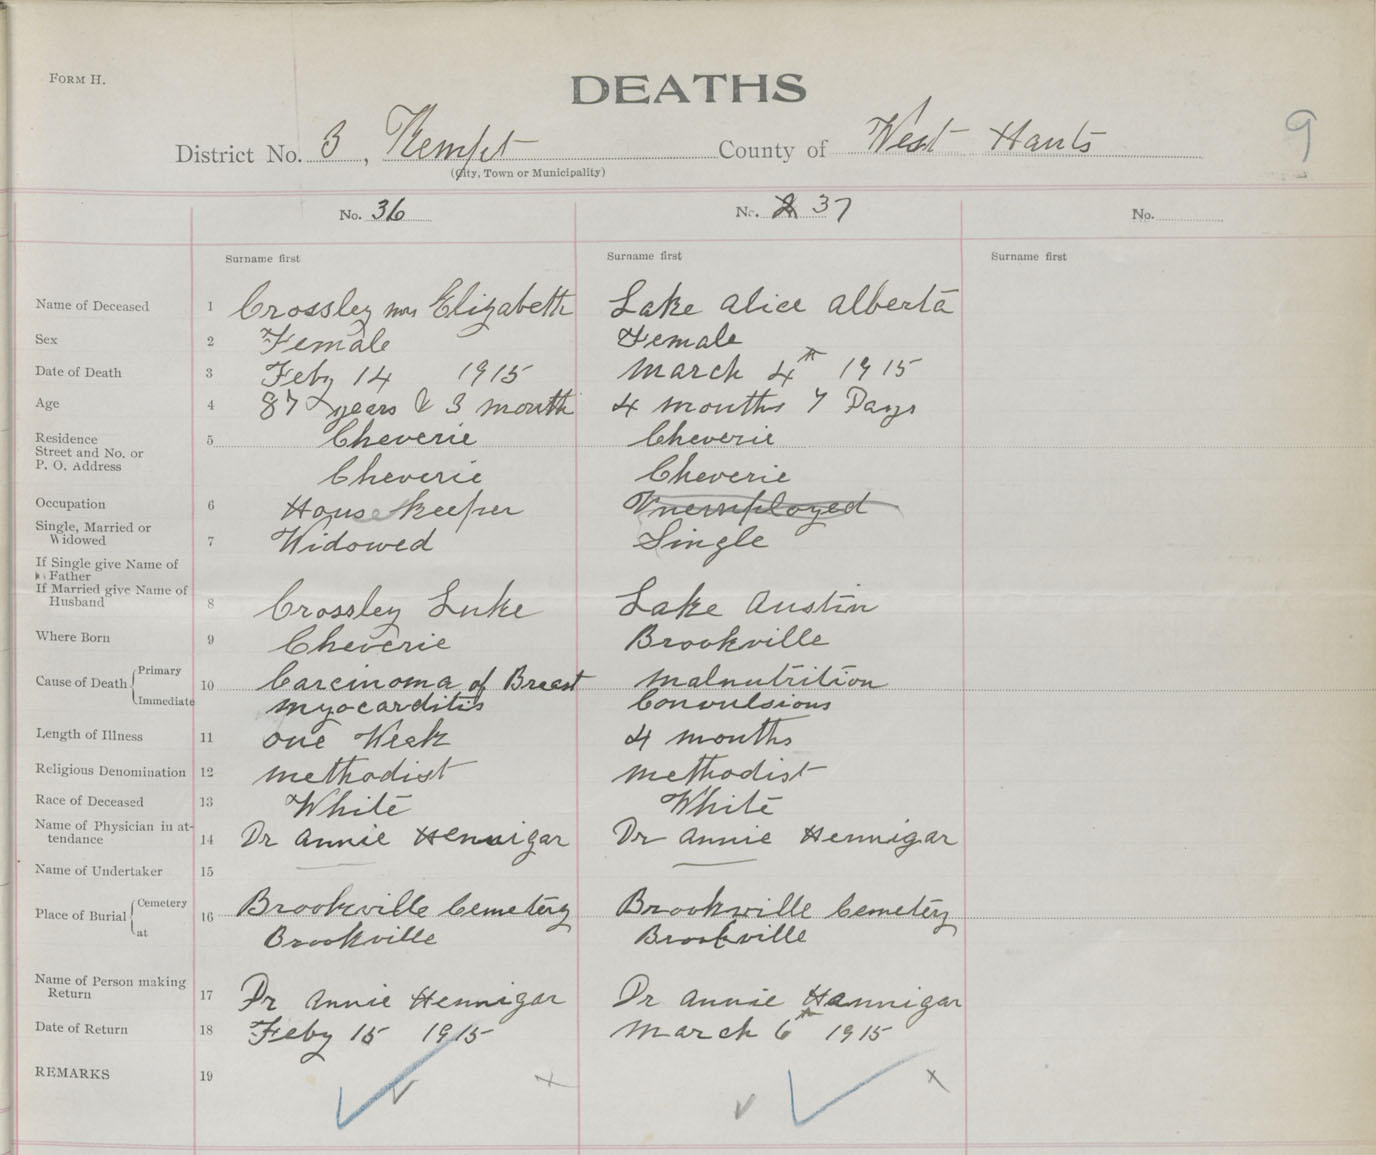 FORM H.
DEATHS
District No. 3, Kempt County of West Hants
(City, Town or Municipality)
9
No. 36 No. 37 No.
Surname first Surname first Surname first
Name of Deceased 1 Crossley mrs Elizabeth Lake Alice Alberta
Sex 2 Female Female
Date of Death 3 Feby 14 1915 March 4th 1915
Age 4 87 years & 3 month 4 months 7 Days
Residence 5 Cheverie Cheverie
Street and No. or
P. O. Address Cheverie Cheverie
Occupation 6 Housekeeper Unemployed
Single, Married or
Widowed 7 Widowed Single
If Single give Name of
Father
If Married give Name of
Husband 8 Crossley Luke Lake Austin
Where Born 9 Cheverie Brookville
Cause of Death Primary 10 Carcinoma of Breast Malnutrition
Immediate Myocarditis Convulsions
Length of Illness 11 one Week 4 months
Religious Denomination 12 Methodist Methodist
Race of Deceased 13 White White
Name of Physician in at-
tendance 14 Dr Annie Hennigar Dr Annie Hennigar
Name of Undertaker 15
Place of Burial Cemetery 16 Brookville Cemetery Brookville Cemetery
at Brookville Brookville
Name of Person making
Return 17 Dr Annie Hennigar Dr Annie Hannigar
Date of Return 18 Feby 15 1915 March 6th 1915
REMARKS 19